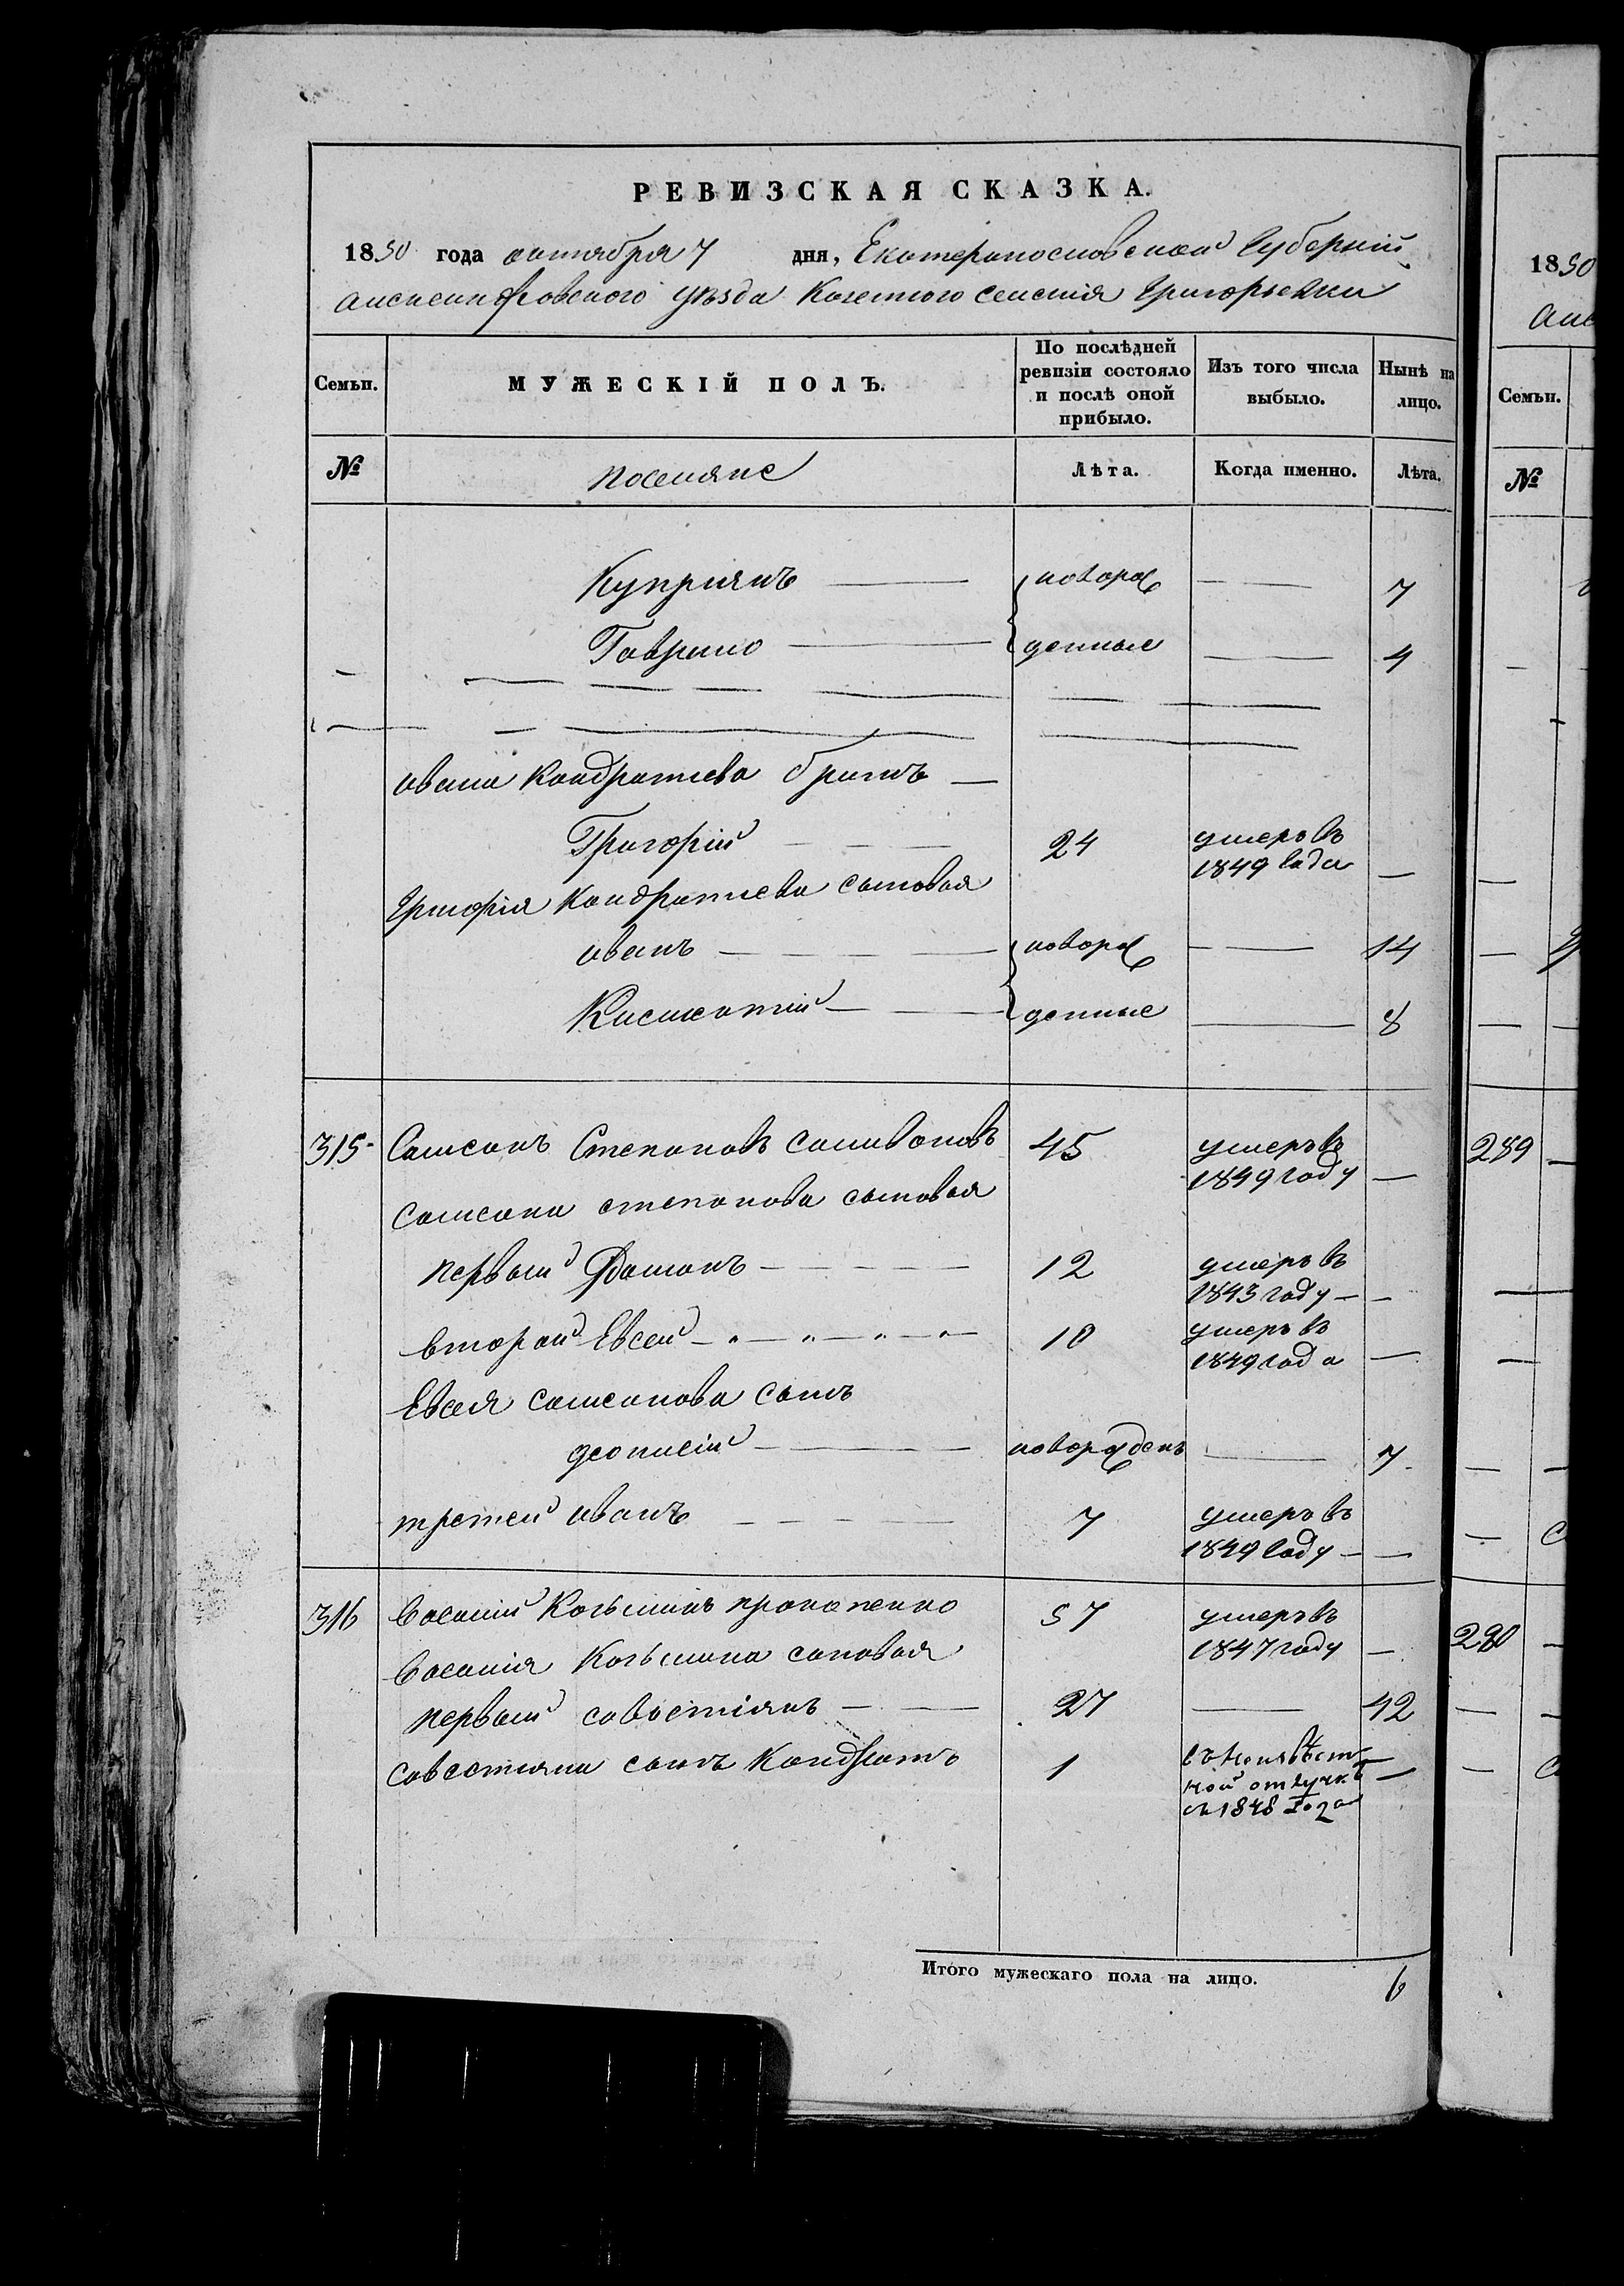 РЕВИЗСКАЯ СКАЗКА.
1850 года октября 7 дня, Екатеринославской Губерніи
Александровского уѣзда Казенного селенія Григорьевки
Семьи. МУЖЕСКІЙ ПОЛЪ. По послѣдней ревизіи состояло и послѣ оной прибыло. Изъ того числа выбыло. Нынѣ на лицо.
№ поселяне Лѣта. Когда именно. Лѣта.
Куприянъ новорож 7
Гаврило денные 4
ивана Кондратиева братъ
Григорій 24 умеръ въ 1849 года —
Григорія Кондратиева сыновья
иванъ новорож 14
денные 8
315 Самсонъ Степановъ 45 умеръ въ 1849 году —
Самсона степанова сыновья
первый 12 умеръ въ 1843 году —
вторый Евсей 10 умеръ въ 1849 года —
Евсея самсонова сынъ
деонисій новорожденъ 7
третей иванъ 7 умеръ въ 1849 году —
316 Василій Козьминъ прокопенко 57 умеръ въ 1847 году —
Василія Козьмина сыновья
первый савостіянъ 27 42
савостияна сынъ Кондратъ 1 въ неизвѣстной отлучкѣ съ 1848 года —
Итого мужескаго пола на лицо. 6
1850
Але
Семьи.
№
289
290